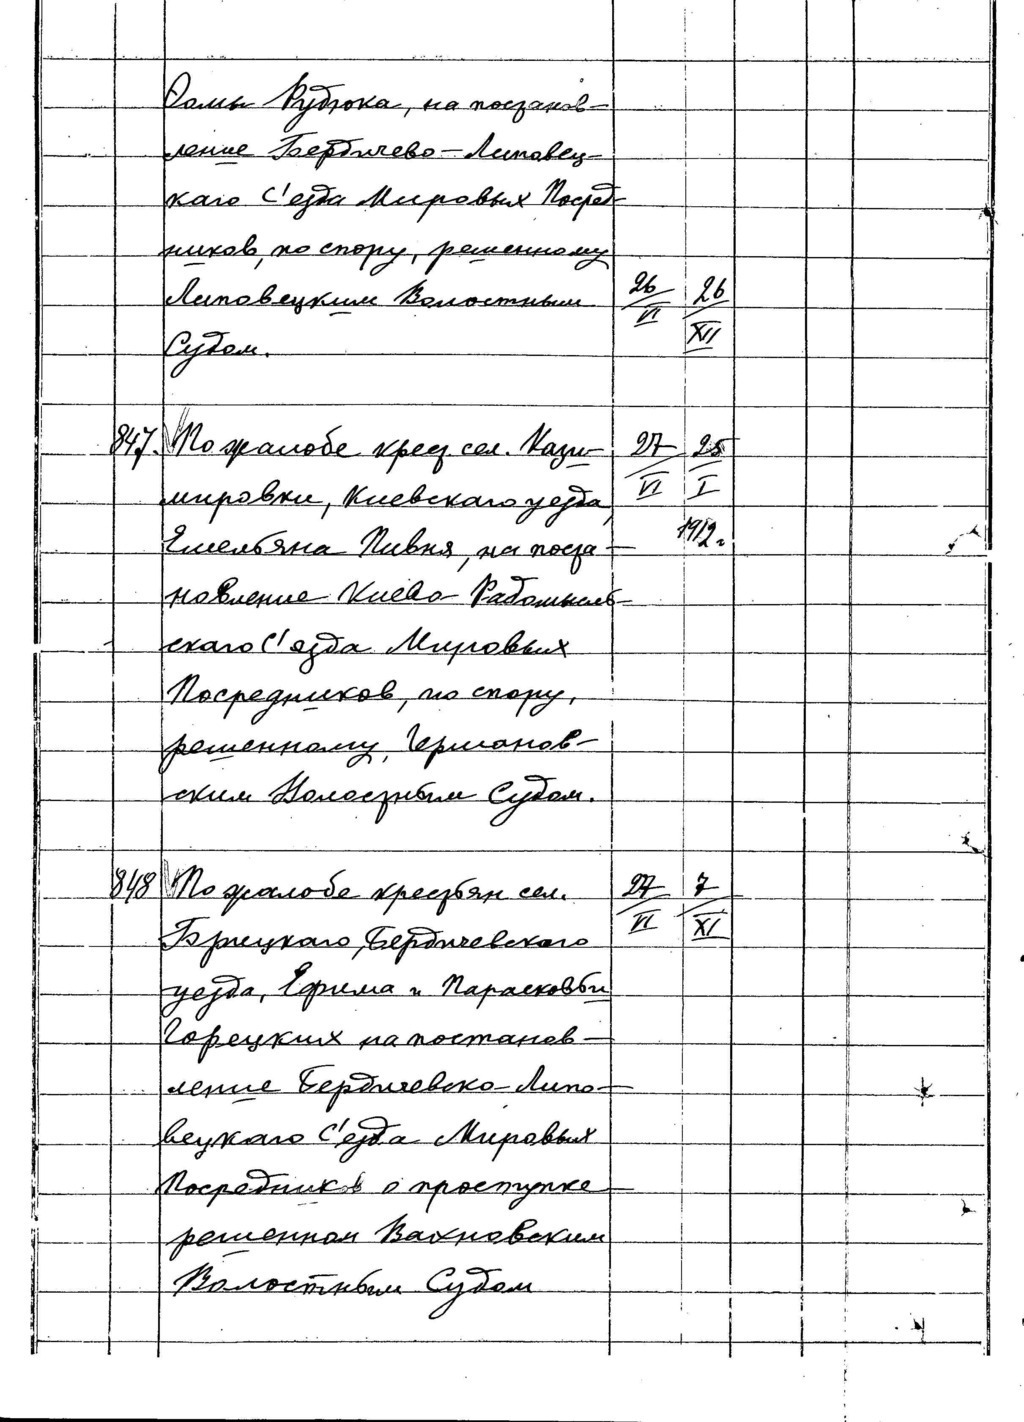 Фомы Рудюка, на постанов-
ление Бердичево-Липовец-
каго С'езда Мировых Посред-
ников, по спору, решенному
Липовецким Волостным 26/VI 26/XII
Судом.
847. По жалобе крест. сел. Кази- 27/VI 25/I
мировки, Киевскаго уезда,
Емельяна Пивня, на поста- 1912 г.
новление Киево-Радомысль-
скаго С'езда Мировых
Посредников, по спору,
решенному, Германов-
ским Волостным Судом.
848 По жалобе крестьян сел. 27/VI 7/XI
Брицкаго, Бердичевского
уезда, Ефима и Парасковьи
Горецких на постанов-
ление Бердичевско-Липо-
вецкаго С'езда Мировых
Посредников о проступке
решенном Вахновским
Волостным Судом